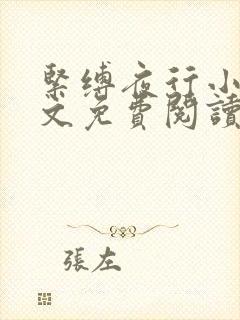 緊縛夜行小
文免費閱讀
張左